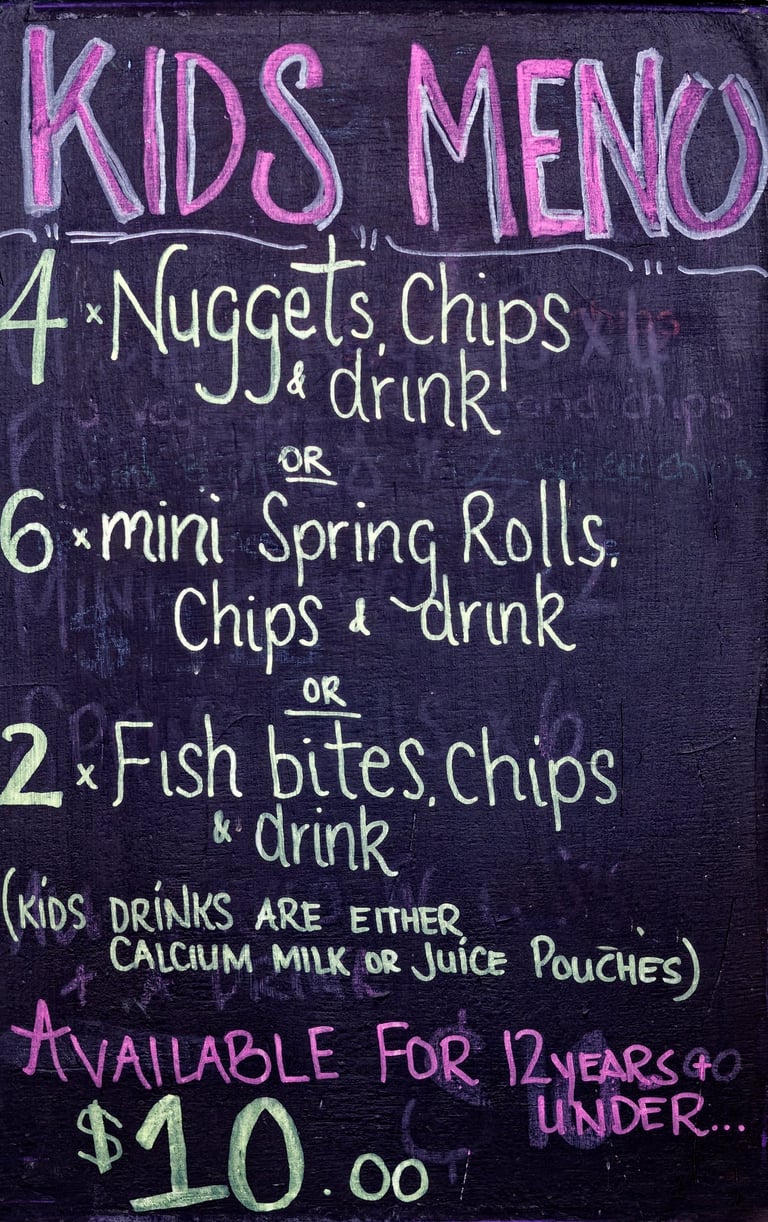 KIDS MENU
4 x Nuggets, Chips
& drink
OR
6 x mini Spring Rolls,
Chips & drink
OR
2 x Fish bites, chips
& drink
(KIDS DRINKS ARE EITHER
CALCIUM MILK OR JUICE POUCHES)
AVAILABLE FOR 12 YEARS +
UNDER...
$10.00